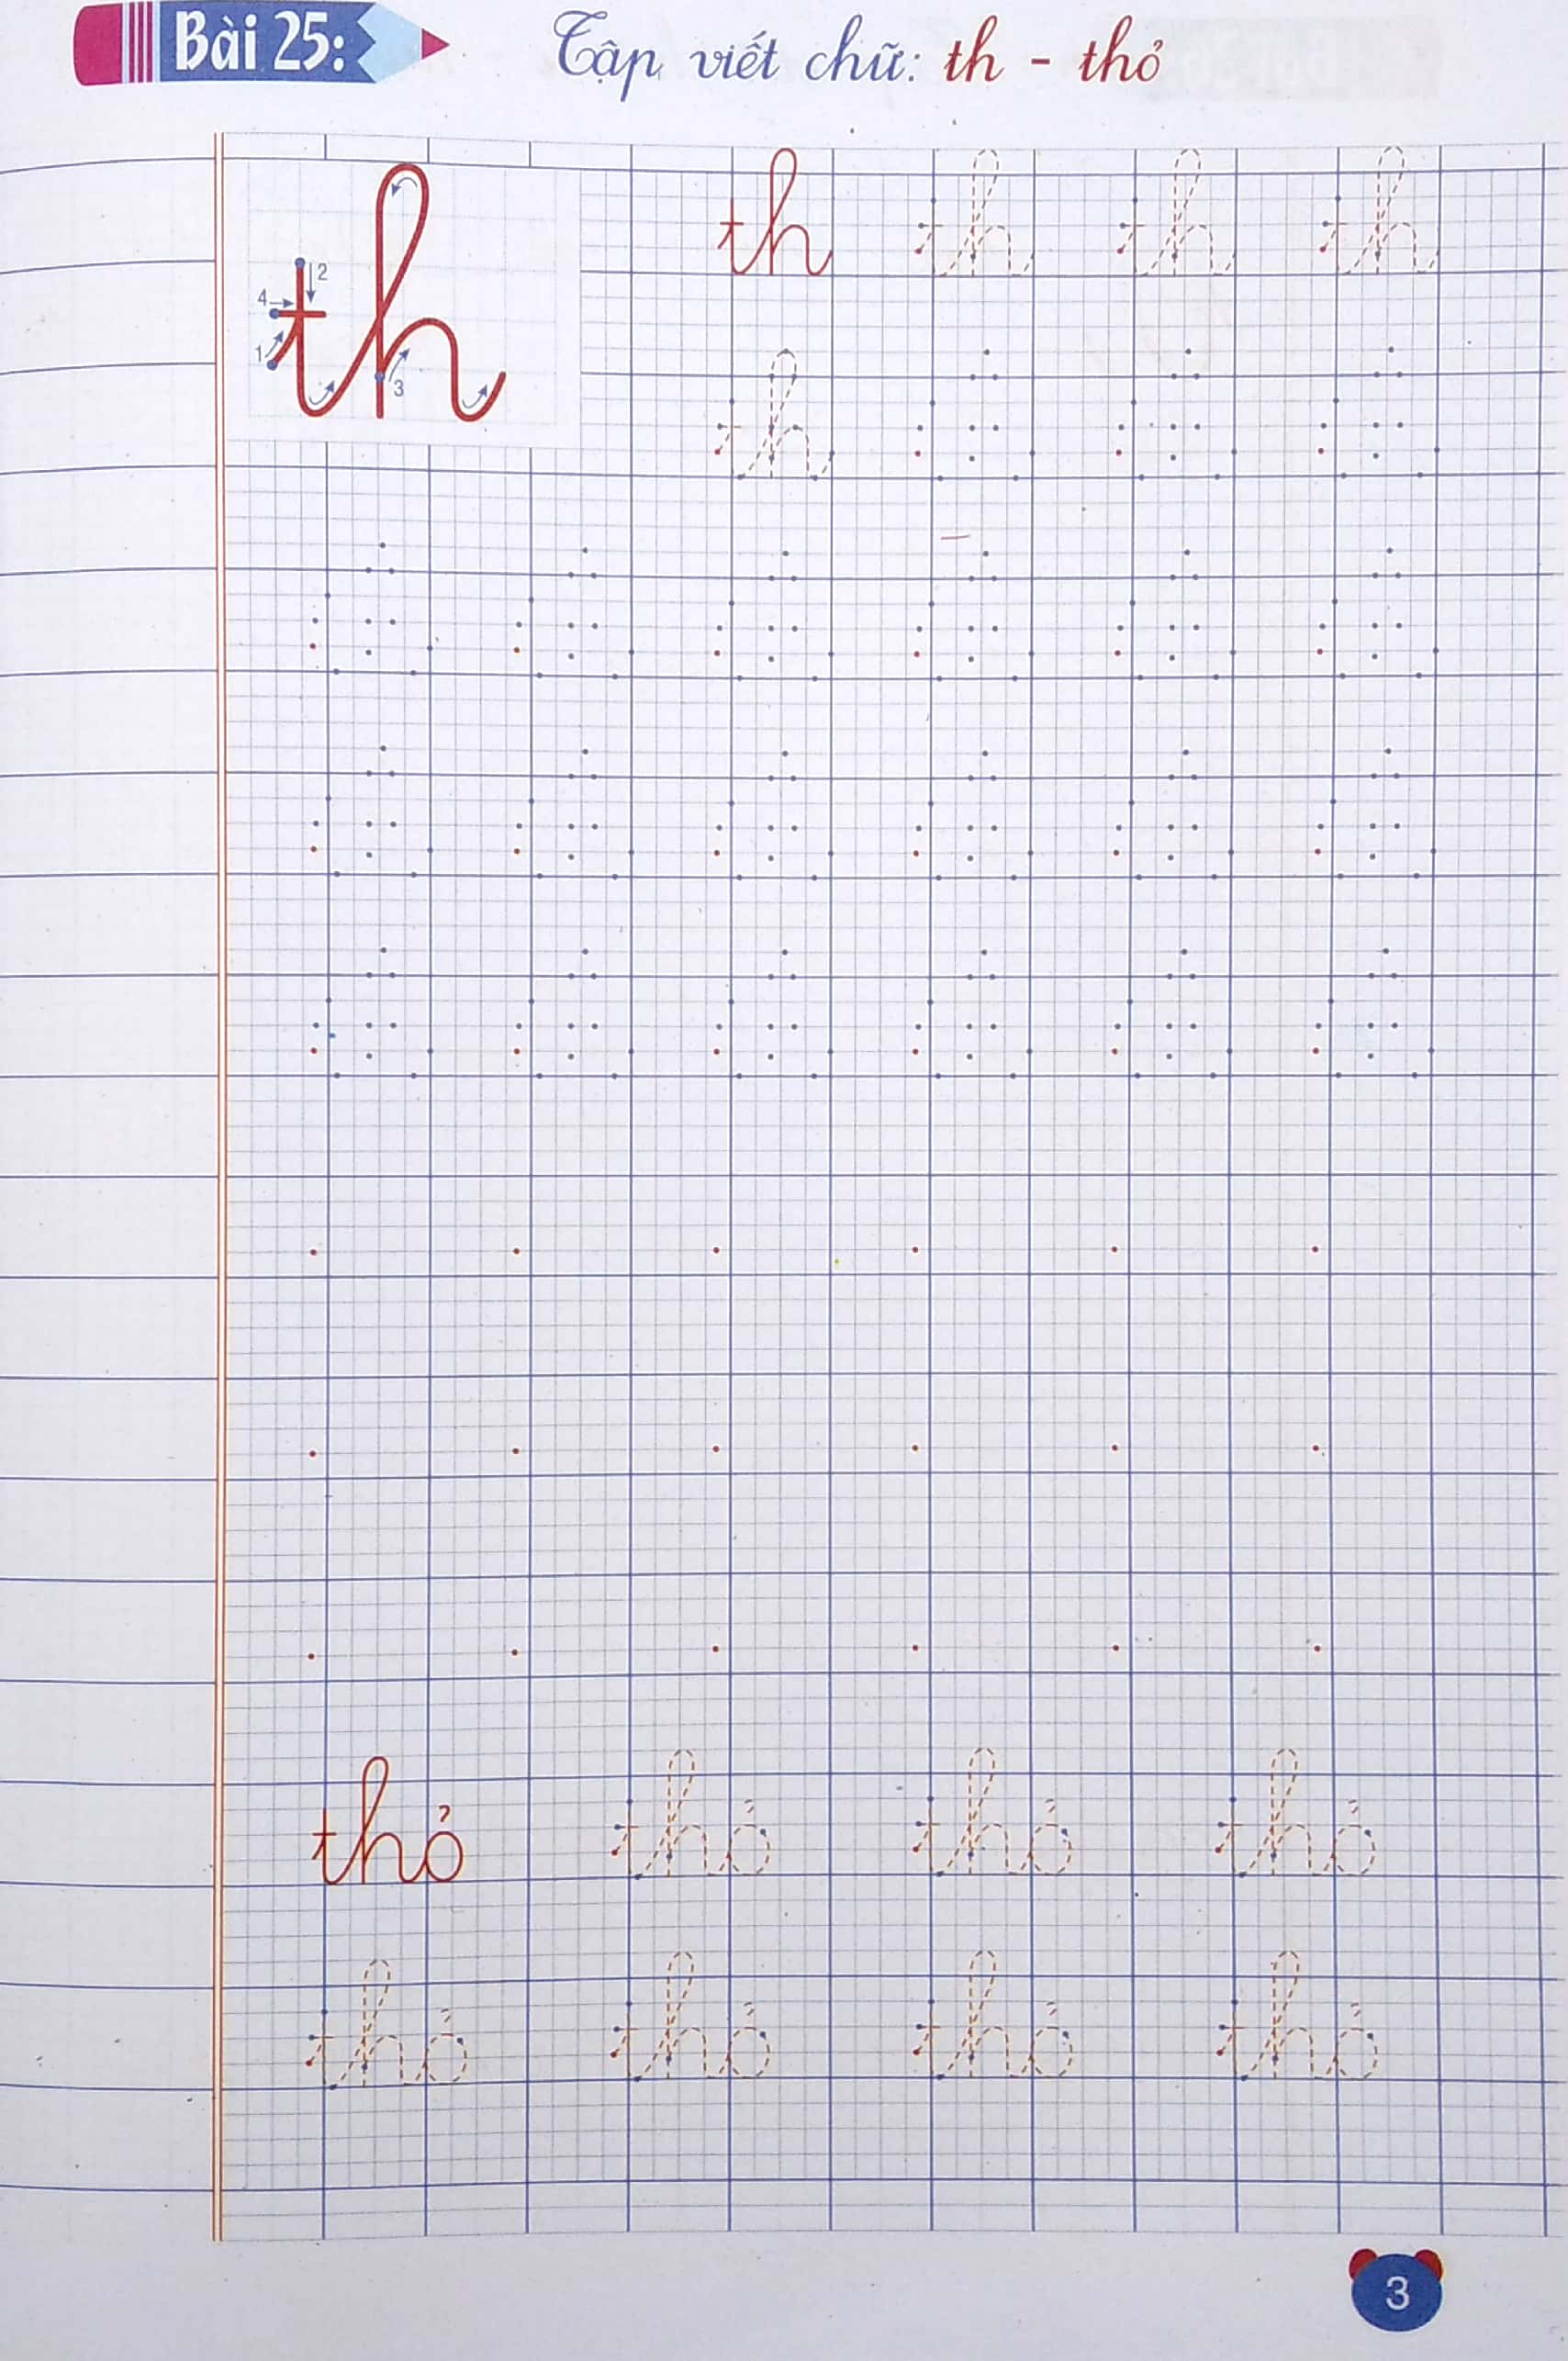 Bài 25: Tập viết chữ: th - thỏ
th th th th
2
4
1
3
th
thỏ thỏ thỏ thỏ
thỏ thỏ thỏ thỏ
3